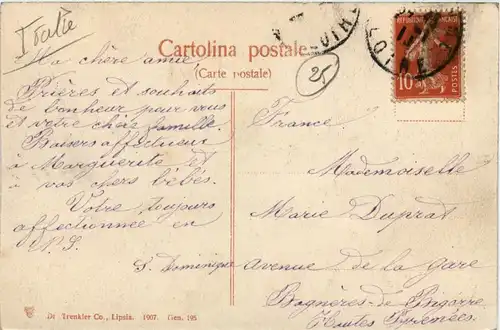 Italie
Cartolina postale
(Carte postale)
25
LOIRE
LOIRE
REPUBLIQUE FRANÇAISE
10
POSTES
Ma chère amie,
Prières et souhaits
de bonheur pour vous
et votre chère famille.
Baisers affectueux
à Marguerite et
à vos chers bébés.
Votre toujours
affectionnée en
N. S.
S. Dominique
France.
Mademoiselle
Marie Duprat
Avenue de la Gare
Bagnères-de Bigorre
Hautes Pyrénées.
Dr. Trenkler Co., Lipsia. 1907. Gen. 195